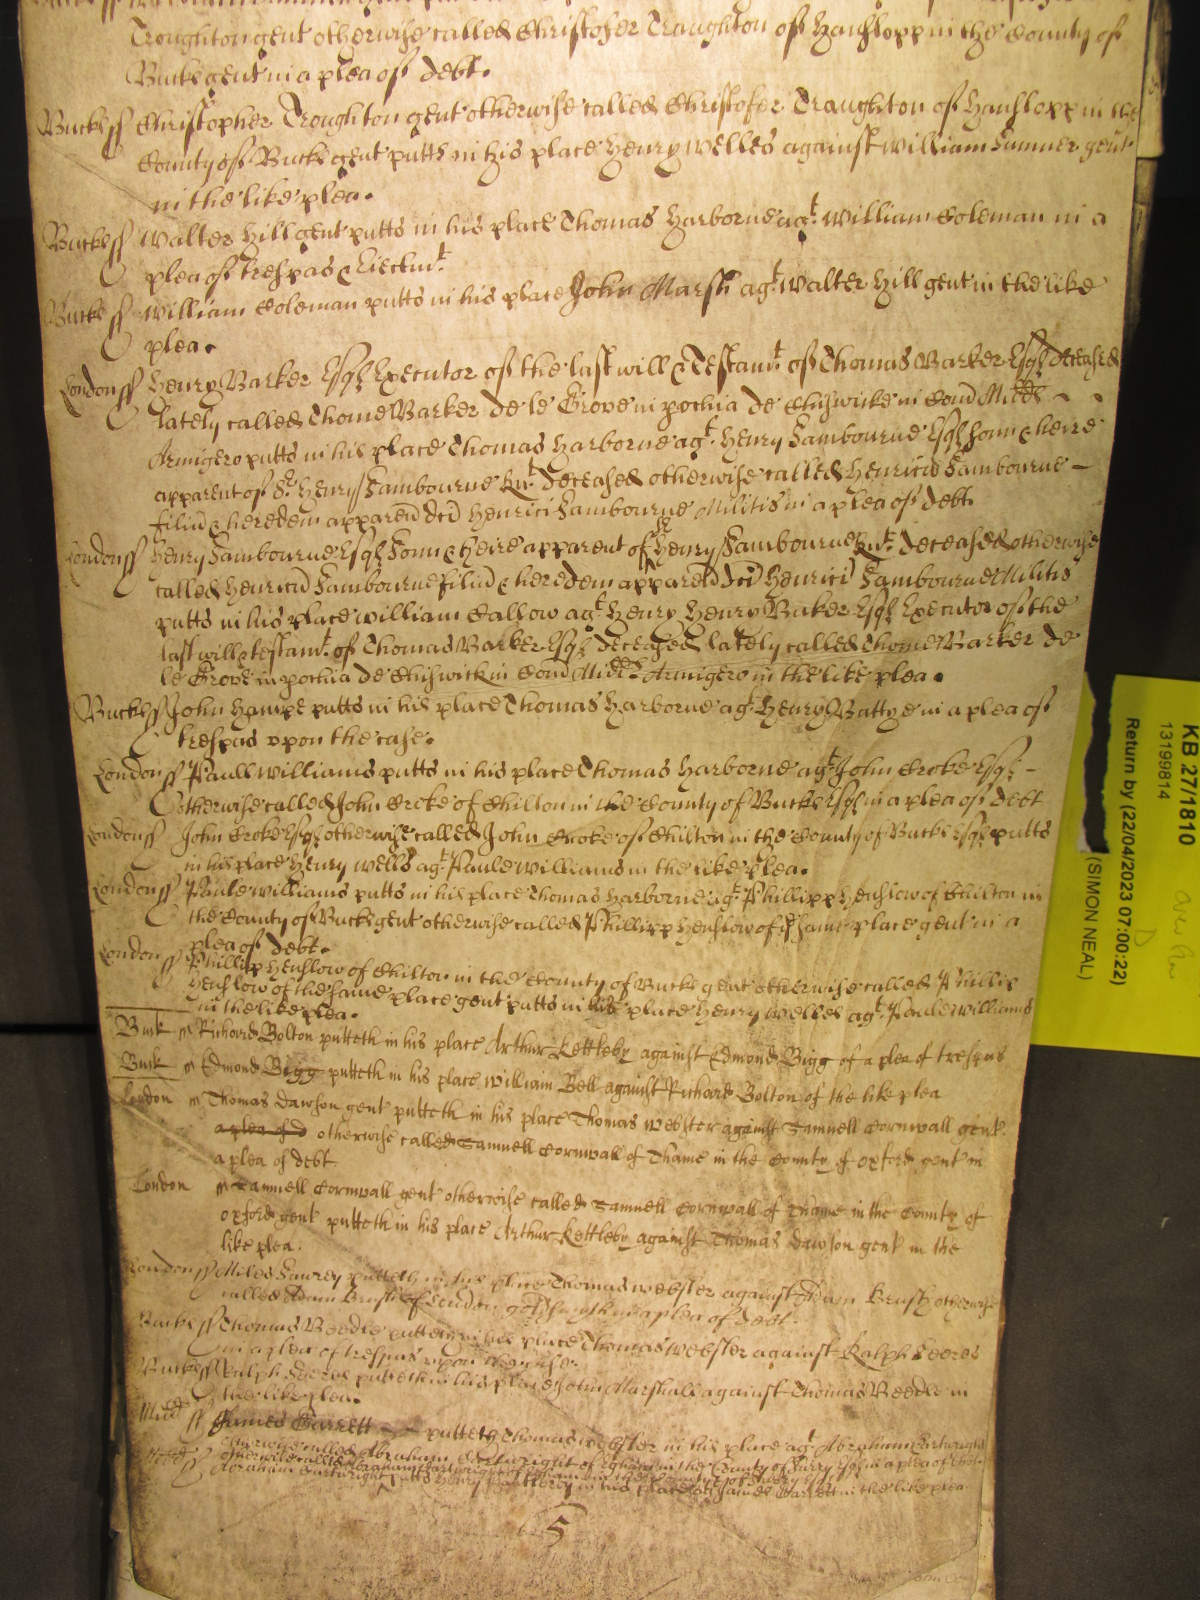 Troughton gent otherwise called Christofer Traughton of Hanslopp in the County of
Bucks gent in a plea of debt.
Buckss Christopher Troughton gent otherwise called Christofer Traughton of Hanslopp in the
County of Bucks gent putts in his place Henry Welles against William Sumner gent
in the like plea.
Buckss Walter Hill gent putts in his place Thomas Harborne agt. William Coleman in a
plea of trespas & Eiectmt.
Buckss William Coleman putts in his place John Marsh agt. Walter Hill gent in the like
plea.
Londonss Henry Barker Esqr Executor of the last will & Testamt. of Thomas Barker Esqr deceased
lately called Thome Barker de le Grove in pochia de Chiswicke in Com Midd
Armigero putts in his place Thomas Harborne agt. Henry Sambourne Esqr sonn & heire
apparent of Sr. Henry Sambourne Knt. deceased otherwise called Henricu Sambourne
filiu & heredem apparen dci Henrici Sambourne Militis in a plea of debt
Londonss Henry Sambourne Esqr Sonn & heire apparent of Sr Henry Sambourne Knt. deceased otherwise
called Henricu Sambourne filiu & heredem apparen dci Henrici Sambourne Militis
putts in his place William Callow agt. Henry Henry Barker Esqr Executor of the
last will & testamt. of Thomas Barker Esqr deceased lately called Thome Barker de
le Grove in pochia de Chiswick in Com Midd. Armigero in the like plea.
Buckss John Hampe putts in his place Thomas Harborne agt. Henry Battye in a plea of
trespas upon the case.
Londonss Paull Williams putts in his place Thomas Harborne agt. John Croke Esqr.
Otherwise called John Croke of Chilton in the County of Bucks Esqr in a plea of debt
Londonss John Croke Esqr otherwise called John Croke of Chilton in the County of Bucks Esqr putts
in his place Henry Wells agt. Paule Williams in the like plea.
Londonss Paule Williams putts in his place Thomas Harborne agt. Phillipp Henslow of Chilton in
the County of Bucks gent otherwise called Phillipp Henslow of the same place gent in a
plea of debt.
Londonss Phillip Henslow of Chilton in the County of Bucks gent otherwise called Phillip
Henslow of the same place gent putts in his place Henry Welles agt. Paule Williams
in the like plea.
Buck ss Richard Bolton putteth in his place Arthur Kettleby against Edmond Bigg of a plea of trespas
Buck ss Edmond Bigg putteth in his place William Bell against Richard Bolton of the like plea
London ss Thomas Dawson gent putteth in his place Thomas Webster against Samuell Cornwall gent.
a plea of d otherwise called Samuell Cornwall of Thame in the County of Oxford gent in
a plea of debt
London ss Samuell Cornwall gent otherwise called Samuell Cornwall of Thame in the County of
Oxford gent putteth in his place Arthur Kettleby against Thomas Dawson gent in the
like plea.
Londonss Miles Sawrey putteth in his place Thomas Webster against Adam Brush otherwise
called Adam Brush of London goldsmyth in a plea of debt.
Buckss Thomas Beedle putteth in his place Thomas Webster against Ralph Seeres
in a plea of trespas upon the case.
Buckss Ralph putteth in his place John Marshall against Thomas Beedle in
the like plea.
Midd ss James Garrett putteth Thomas Webster in his place agt Abraham Cartwright
otherwise called Abraham Cartwright of in the County of Surry Esqr in a plea of debt.
Abraham Cartwright putts Henry in his place agt James Garrett in the like plea
5
KB 27/1810
13199814
Return by (22/04/2023 07:00:22)
(SIMON NEAL)